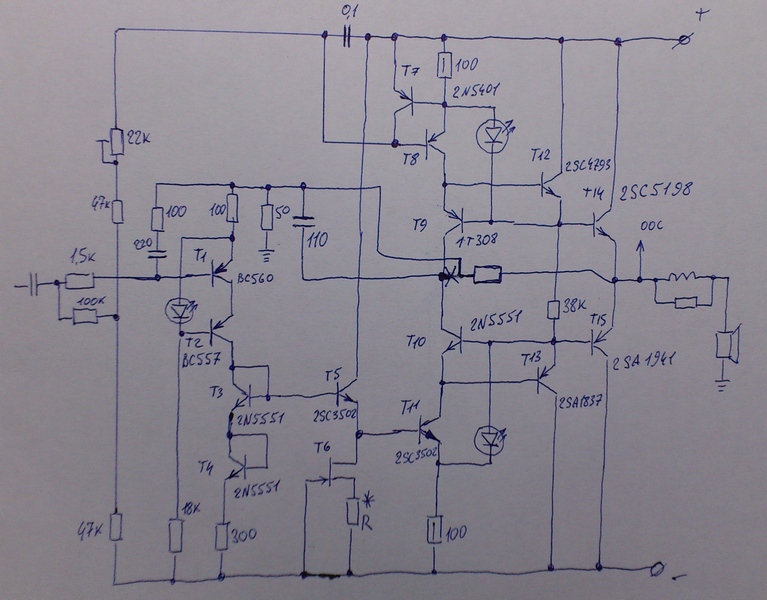 0,1
+
T7
100
2N5401
22к
T8
T12
2SC4793
T14
2SC5198
47к
100
100
50
T9
1T308
ООС
220
110
1,5к
T1
BC560
100к
38к
T2
BC557
T10
2N5551
T15
2SA1941
T3
2N5551
T5
2SC3502
T13
2SA1837
T11
2SC3502
T4
2N5551
T6
*
R
47к
18к
300
100
-